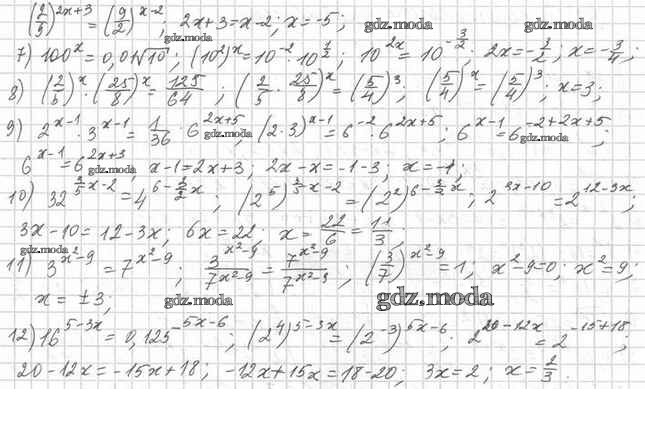 (2/9)^(2x+3) = (9/2)^(x-2); 2x+3=x-2; x=-5; gdz.moda gdz.moda
7) 100^x = 0,01√10; (10^2)^x=10^-2·10^(1/2); 10^(2x)=10^(-3/2); 2x=-3/2; x=-3/4; gdz.moda
8) (2/5)^x·(25/8)^x=125/64; (2/5·25/8)^x=(5/4)^3; (5/4)^x=(5/4)^3; x=3;
9) 2^(x-1)·3^(x-1)=1/36·6^(2x+5); (2·3)^(x-1)=6^-2·6^(2x+5); 6^(x-1)=6^(-2+2x+5); gdz.moda gdz.moda
6^(x-1)=6^(2x+3) x-1=2x+3; 2x-x=-1-3; x=-4; gdz.moda
10) 32^(3/5x-2)=4^(6-3/2x); (2^5)^(3/5x-2)=(2^2)^(6-3/2x); 2^(3x-10)=2^(12-3x);
3x-10=12-3x; 6x=22; x=22/6=11/3; gdz.moda
11) 3^(x^2-9)=7^(x^2-9); 3^(x^2-9)/7^(x^2-9)=7^(x^2-9)/7^(x^2-9); (3/7)^(x^2-9)=1; x^2-9=0; x^2=9;
x=±3; gdz.moda gdz.moda
12) 16^(5-3x)=0,125^(5x-6); (2^4)^(5-3x)=(2^-3)^(5x-6); 2^(20-12x)=2^(-15+18);
20-12x=-15x+18; -12x+15x=18-20; 3x=2; x=2/3.